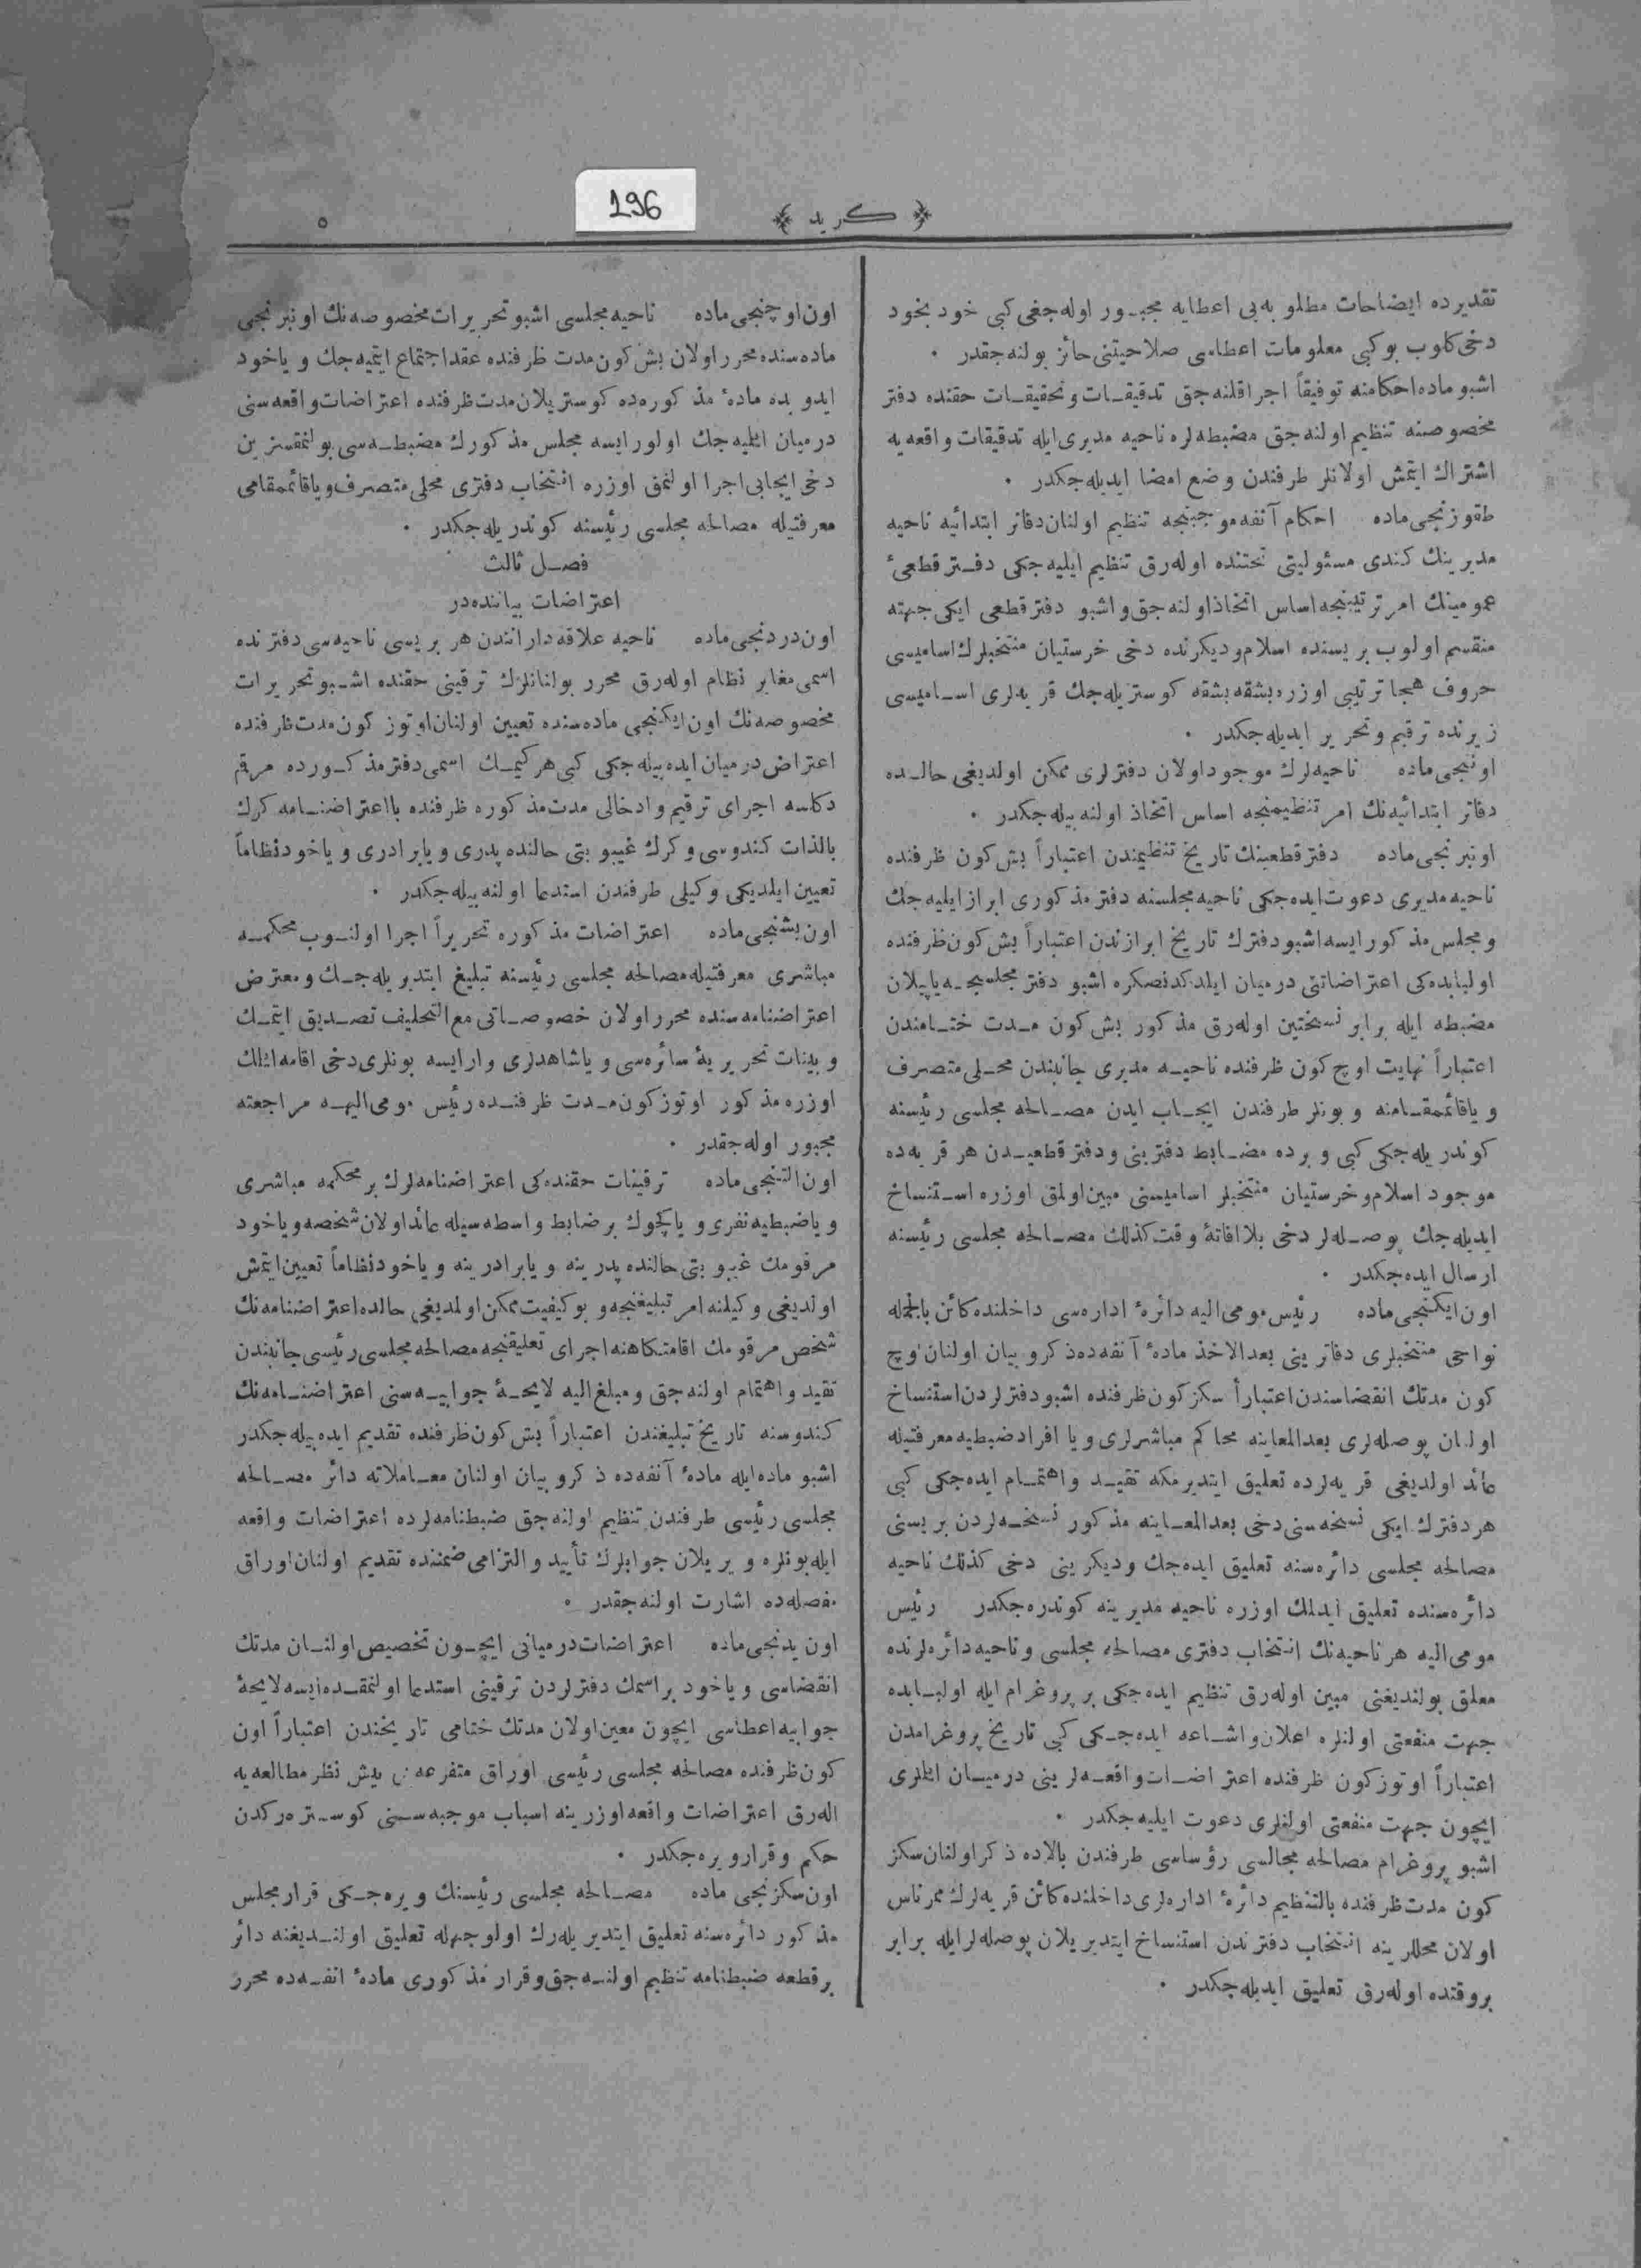 196
﴿ كريد ﴾
٥
تقديرده ايضاحات مطلوبه‌يى اعطايه مجبور اوله‌جغى كبى خود بخود
دخى كلوب بوكبى معلومات اعطاسى صلاحيتنى حائز بولنه‌جقدر .
اشبو ماده احكامنه توفيقاً اجرا قلنه‌جق تدقيقات وتحقيقات حقنده دفتر
مخصوصنه تنظيم اولنه‌جق مضبطه‌لره ناحيه مديرى ايله تدقيقات واقعه‌يه
اشتراك ايتمش اولانلر طرفندن وضع امضا ايديله‌جكدر .
طقوزنجى ماده احكام آنفه موجبنجه تنظيم اولنان دفاتر ابتدائيه ناحيه
مديرينك كندى مسئوليتى تحتنده اوله‌رق تنظيم ايليه‌جكى دفتر قطعىٔ
عمومينك امر ترتيبنجه اساس اتخاذ اولنه‌جق واشبو دفتر قطعى ايكى جهته
منقسم اولوب بريسنده اسلام وديكرنده دخى خرستيان منتخبلرك اساميسى
حروف هجا ترتيبى اوزره بشقه بشقه كوستريله‌جك قريه‌لرى اساميسى
زيرنده ترقيم وتحرير ايديله‌جكدر .
اوننجى ماده ناحيه‌لرك موجود اولان دفترلرى ممكن اولديغى حالده
دفاتر ابتدائيه‌نك امر تنظيمنجه اساس اتخاذ اولنه بيله‌جكدر .
اونبرنجى ماده دفتر قطعينك تاريخ تنظيمندن اعتباراً بش كون ظرفنده
ناحيه مديرى دعوت ايده‌جكى ناحيه مجلسنه دفتر مذكورى ابراز ايليه‌جك
ومجلس مذكور ايسه اشبو دفترك تاريخ ابرازندن اعتباراً بش كون ظرفنده
اولبابده‌كى اعتراضاتنى درميان ايلدكدنصكره اشبو دفتر مجلسجه ياپيلان
مضبطه ايله برابر نسختين اوله‌رق مذكور بش كون مدت ختامندن
اعتباراً نهايت اوچ كون ظرفنده ناحيه مديرى جانبندن محلى متصرف
وياقائممقامنه وبونلر طرفندن ايجاب ايدن مصالحه مجلسى رئيسنه
كوندريله‌جكى كبى وبرده مضابط دفترينى ودفتر قطعيدن هر قريه‌ده
موجود اسلام وخرستيان منتخبلر اساميسنى مبين اولمق اوزره استنساخ
ايديله‌جك پوصله‌لر دخى بلا افاتهٔ وقت كذلك مصالحه مجلسى رئيسنه
ارسال ايده‌جكدر .
اون ايكنجى ماده رئيس مومى اليه دائرهٔ اداره‌سى داخلنده كائن بالجمله
نواحى منتخبلرى دفاترينى بعدالاخذ مادهٔ آنفه‌ده ذكر وبيان اولنان اوچ
كون مدتك انقضاسندن اعتباراً سكز كون ظرفنده اشبو دفترلردن استنساخ
اولنان پوصله‌لرى بعدالمعاينه محاكم مباشرلرى ويا افراد ضبطيه معرفتيله
عائد اولديغى قريه‌لرده تعليق ايتديرمكه تقيد واهتمام ايده‌جكى كبى
هر دفترك ايكى نسخه‌سنى دخى بعدالمعاينه مذكور نسخه‌لردن بريسنى
مصالحه مجلسى دائره‌سنه تعليق ايده‌جك وديكرينى دخى كذلك ناحيه
دائره‌سنده تعليق ايدلمك اوزره ناحيه مديرينه كوندره‌جكدر رئيس
مومى اليه هر ناحيه‌نك انتخاب دفترى مصالحه مجلسى وناحيه دائره‌لرنده
معلق بولنديغنى مبين اوله‌رق تنظيم ايده‌جكى بر پروغرام ايله اولبابده
جهت منفعتى اولنلره اعلان واشاعه ايده‌جكى كبى تاريخ پروغرامدن
اعتباراً اوتوز كون ظرفنده اعتراضات واقعه‌لرينى درميان اتملرى
ايچون جهت منفعتى اولنلرى دعوت ايليه‌جكدر .
اشبو پروغرام مصالحه مجالسى رؤساسى طرفندن بالاده ذكر اولنان سكز
كون مدت ظرفنده بالتنظيم دائرهٔ اداره‌لرى داخلنده كائن قريه‌لرك ممر ناس
اولان محللرينه انتخاب دفترندن استنساخ ايتديريلان پوصله‌لر ايله برابر
بروقتده اوله‌رق تعليق ايديله‌جكدر .
اون اوچنجى ماده ناحيه مجلسى اشبو تحريرات مخصوصه‌نك اونبرنجى
ماده‌سنده محرر اولان بش كون مدت ظرفنده عقد اجتماع ايتميه‌جك وياخود
ايدوبده مادهٔ مذكوره‌ده كوستريلان مدت ظرفنده اعتراضات واقعه‌سنى
درميان اتمليه‌جك اولور ايسه مجلس مذكورك مضبطه‌سى بولنمقسزين
دخى ايجابى اجرا اولنمق اوزره انتخاب دفترى محلى متصرف وياقائممقامى
معرفتيله مصالحه مجلسى رئيسنه كوندريله‌جكدر .
فصل ثالث
اعتراضات بياننده‌در
اون دردنجى ماده ناحيه علاقه‌دارانندن هر بريسى ناحيه‌سى دفترنده
اسمى مغاير نظام اوله‌رق محرر بولنانلرك ترقينى حقنده اشبو تحريرات
مخصوصه‌نك اون ايكنجى ماده‌سنده تعيين اولنان اوتوز كون مدت ظرفنده
اعتراض درميان ايده بيله‌جكى كبى هر كيمك اسمى دفتر مذكورده مرقم
دكلسه اجراى ترقيم وادخالى مدت مذكوره ظرفنده بااعتراضنامه كرك
بالذات كندوسى وكرك غيبوبتى حالنده پدرى ويابرادرى وياخود نظاماً
تعيين ايلديكى وكيلى طرفندن استدعا اولنه بيله‌جكدر .
اون بشنجى ماده اعتراضات مذكوره تحريراً اجرا اولنوب محكمه
مباشرى معرفتيله مصالحه مجلسى رئيسنه تبليغ ايتديريله‌جك ومعترض
اعتراضنامه‌سنده محرر اولان خصوصاتى مع التحليف تصديق ايتمك
وبينات تحريريهٔ سائره‌سى وياشاهدلرى وار ايسه بونلرى دخى اقامه اتملك
اوزره مذكور اوتوز كون مدت ظرفنده رئيس مومى اليهه مراجعته
مجبور اوله‌جقدر .
اون التنجى ماده ترقينات حقنده‌كى اعتراضنامه‌لرك بر محكمه مباشرى
وياضبطيه نفرى وياكچوك بر ضابط واسطه‌سيله عائد اولان شخصه وياخود
مرقومك غيبوبتى حالنده پدرينه ويابرادرينه وياخود نظاماً تعيين ايتمش
اولديغى وكيلنه امر تبليغنجه وبوكيفيت ممكن اولمديغى حالده اعتراضنامه‌نك
شخص مرقومك اقامتكاهنه اجراى تعليقنجه مصالحه مجلسى رئيسى جانبندن
تقيد واهتمام اولنه‌جق ومبلغ اليه لايحهٔ جوابيه‌سنى اعتراضنامه‌نك
كندوسنه تاريخ تبليغندن اعتباراً بش كون ظرفنده تقديم ايده بيله‌جكدر
اشبو ماده ايله مادهٔ آنفه‌ده ذكر وبيان اولنان معاملاته دائر مصالحه
مجلسى رئيسى طرفندن تنظيم اولنه‌جق ضبطنامه‌لرده اعتراضات واقعه
ايله بونلره ويريلان جوابلرك تأييد والتزامى ضمننده تقديم اولنان اوراق
مفصله‌ده اشارت اولنه‌جقدر .
اون يدنجى ماده اعتراضات درميانى ايچون تخصيص اولنان مدتك
انقضاسى وياخود بر اسمك دفترلردن ترقينى استدعا اولنمقده ايسه لايحهٔ
جوابيه اعطاسى ايچون معين اولان مدتك ختامى تاريخندن اعتباراً اون
كون ظرفنده مصالحه مجلسى رئيسى اوراق متفرعه‌يى پيش نظر مطالعه‌يه
اله‌رق اعتراضات واقعه اوزرينه اسباب موجبه‌سنى كوستره‌ركدن
حكم وقرار ويره‌جكدر .
اون سكزنجى ماده مصالحه مجلسى رئيسنك ويره‌جكى قرار مجلس
مذكور دائره‌سنه تعليق ايتديريله‌رك اولوجهله تعليق اولنديغنه دائر
بر قطعه ضبطنامه تنظيم اولنه‌جق وقرار مذكورى مادهٔ انفه‌ده محرر